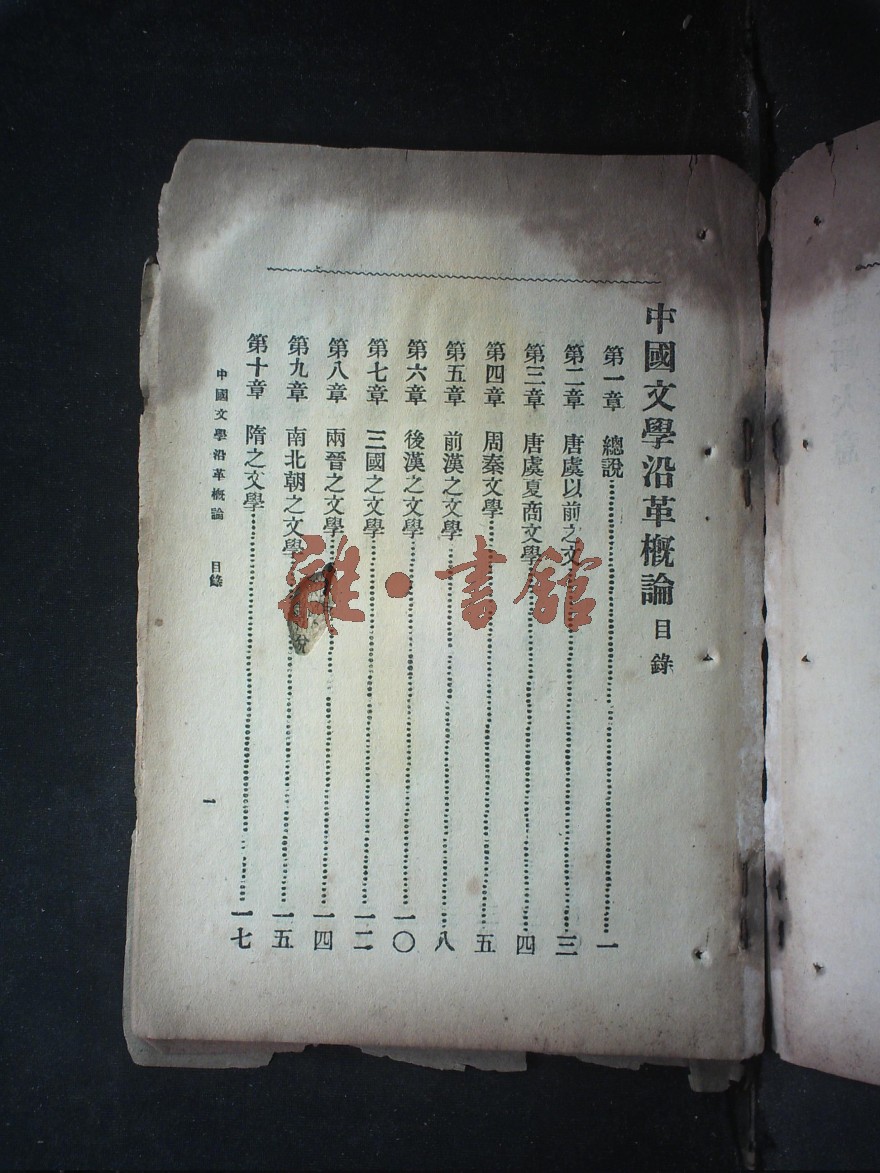 中國文學沿革概論 目錄
第一章 總說 一
第二章 唐虞以前之文 三
第三章 唐虞夏商文學 四
第四章 周秦文學 五
第五章 前漢之文學 八
第六章 後漢之文學 一〇
第七章 三國之文學 一二
第八章 兩晉之文學 一四
第九章 南北朝之文學 一五
第十章 隋之文學 一七
中國文學沿革概論 目錄 一
雜·書館